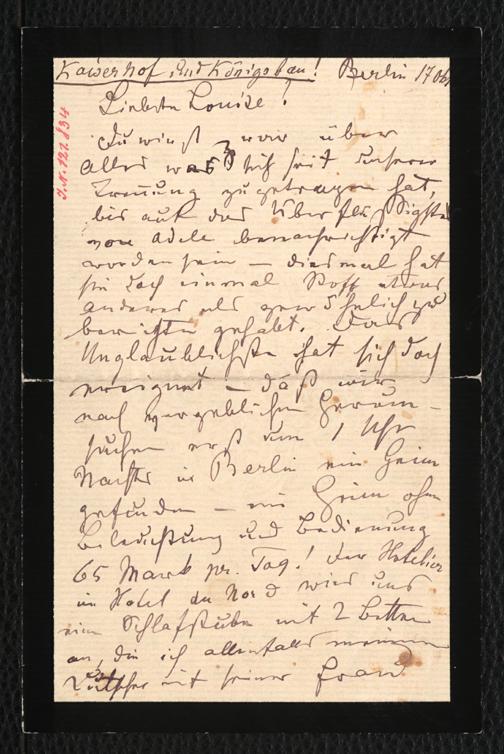 Kaiserhof und Königsbau! Berlin 17 Okt
Liebste Louise!
Du wirst zwar über
alles was sich seit unserer
Trennung zugetragen hat,
bis auf das Überflüssigste
von Adele benachrichtigt
worden sein – diesmal hat
sie doch einmal Stoff etwas
anderes als gewöhnlich zu
berichten gehabt. Das
Unglaublichste hat sich doch
ereignet – daß wir
nach vergeblichem Herum-
suchen erst um 1 Uhr
Nachts in Berlin ein Heim
gefunden – ein Heim ohne
Beleuchtung und Bedienung
65 Mark pr. Tag! Der Hotelier
im Hotel du Nord wies uns
eine Schlafstube mit 2 Betten
an, die ich allenfalls
mit seiner Frau
J.N. 122.834